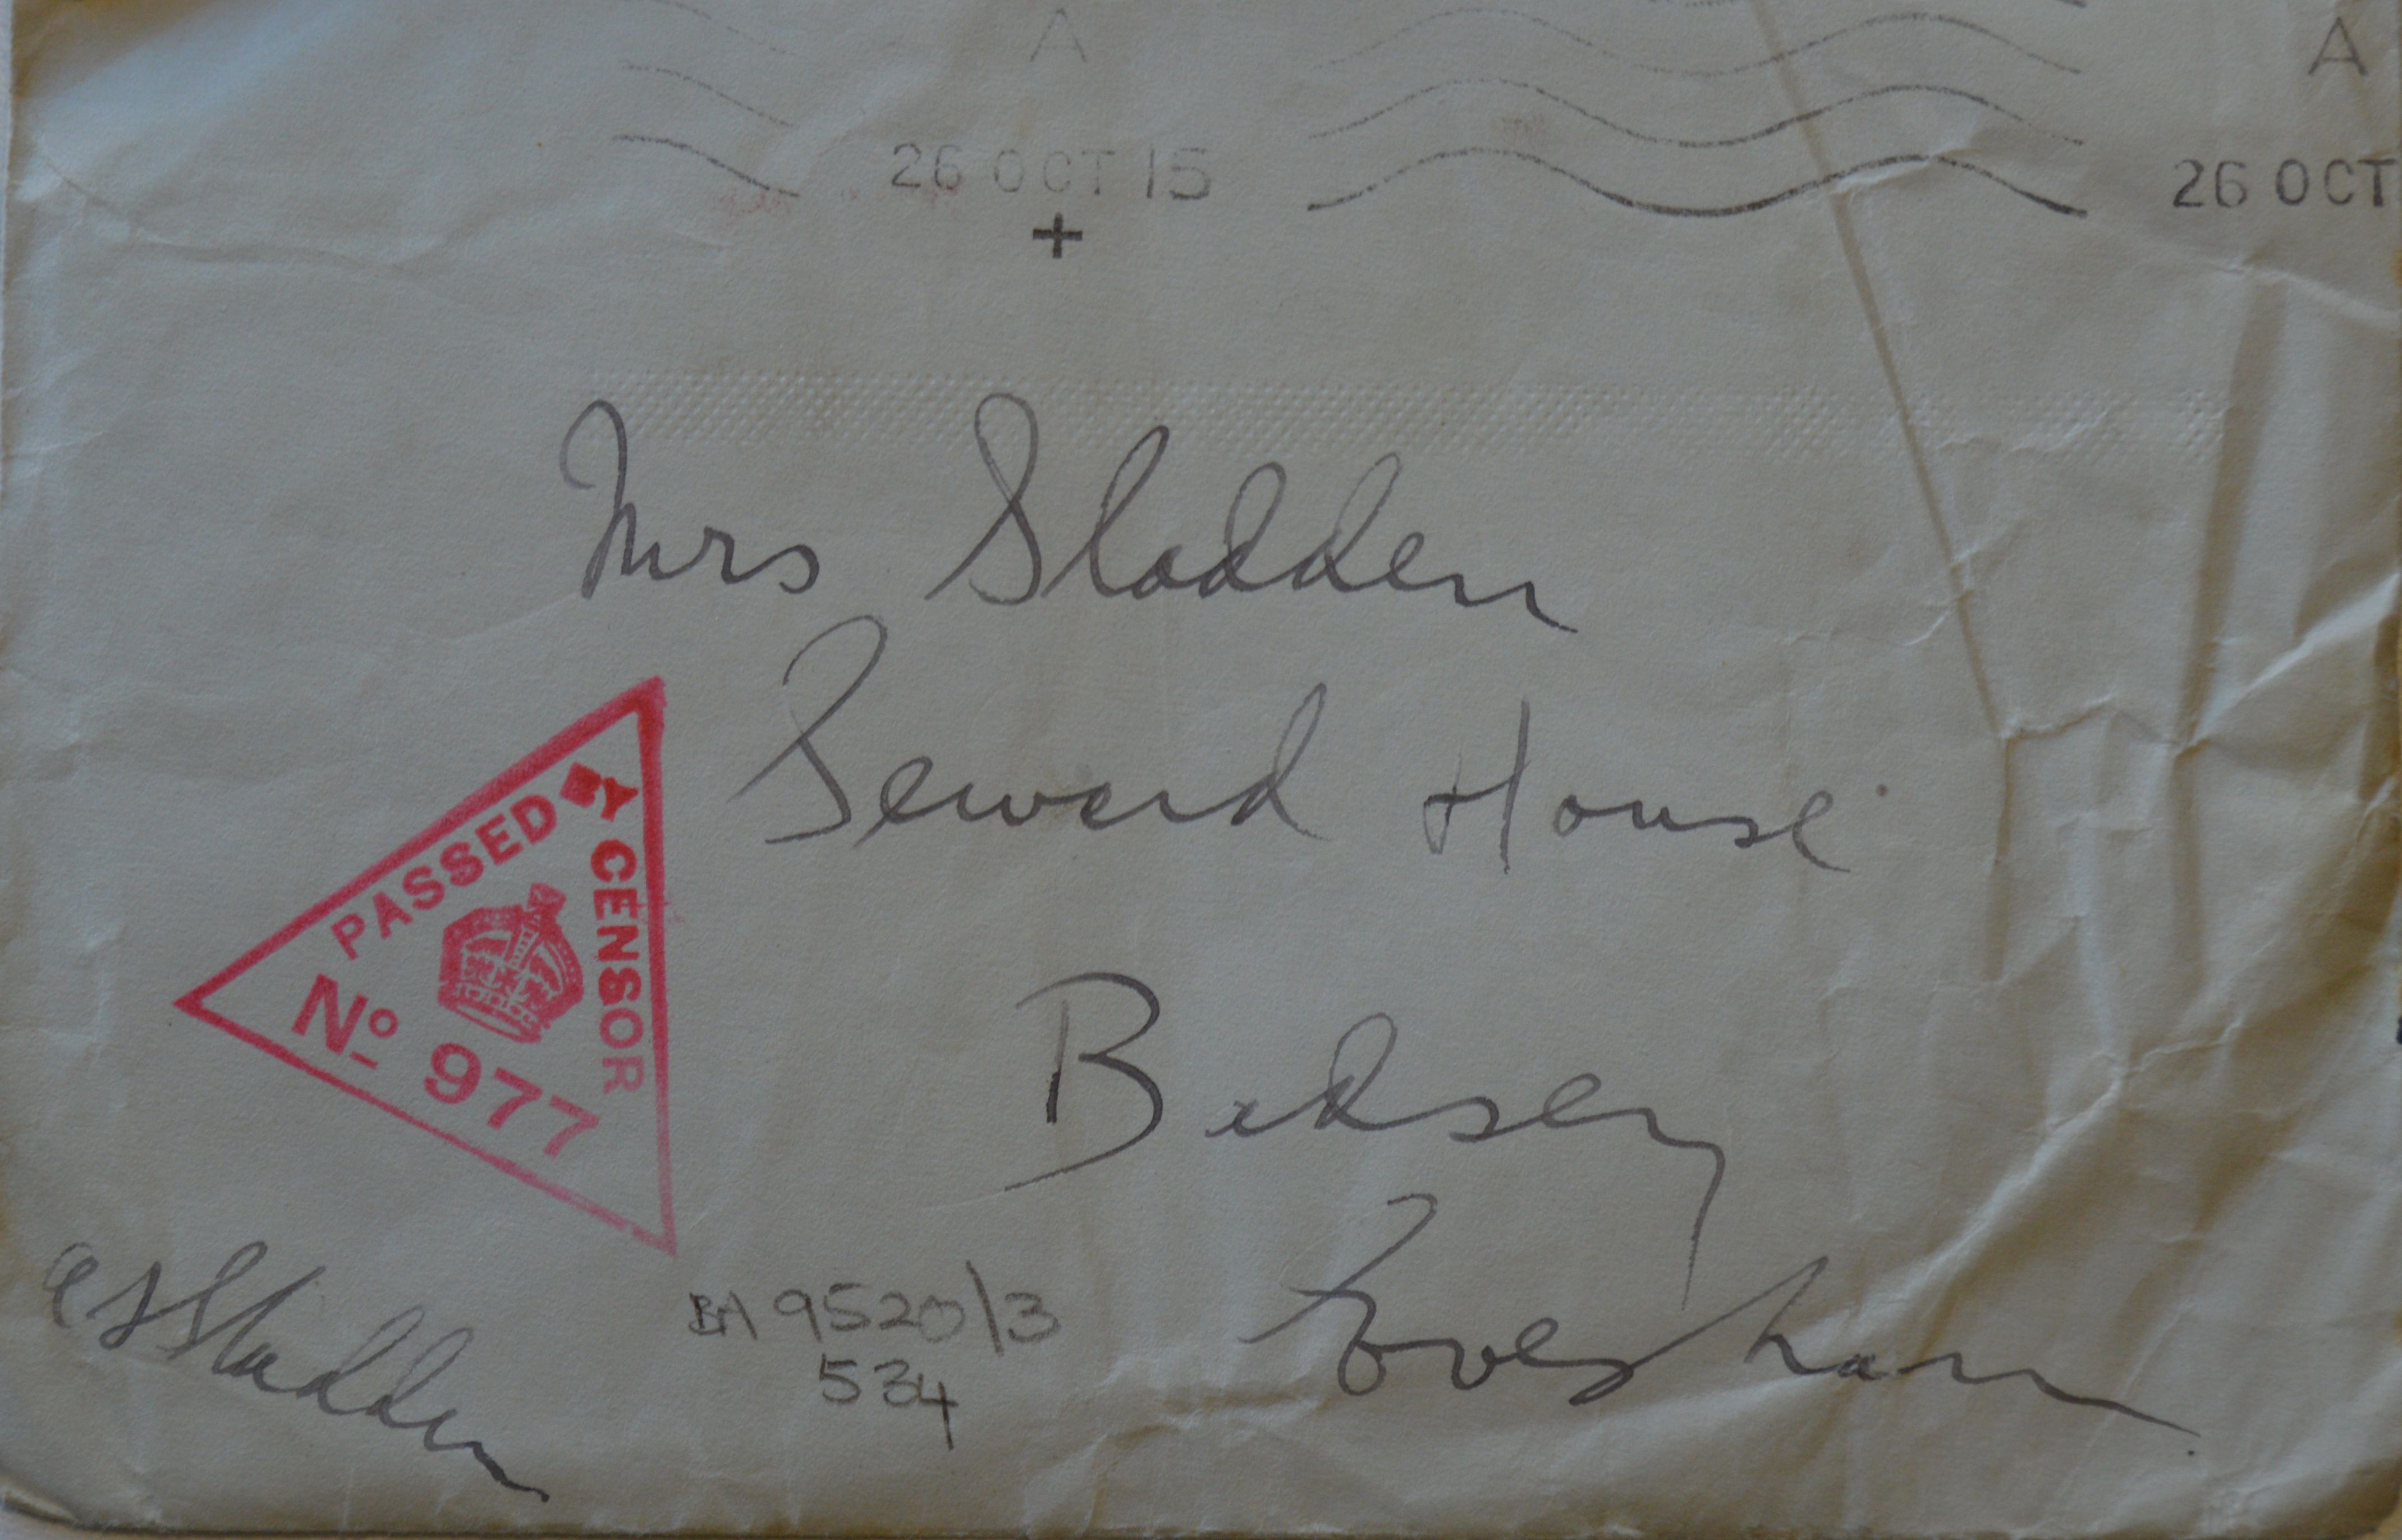 A A
26 OCT 15 26 OCT
Mrs Sladden
Seward House
PASSED BY CENSOR
No 977
Badsey
Evesham
a s Sladden
BA 9520/3
534